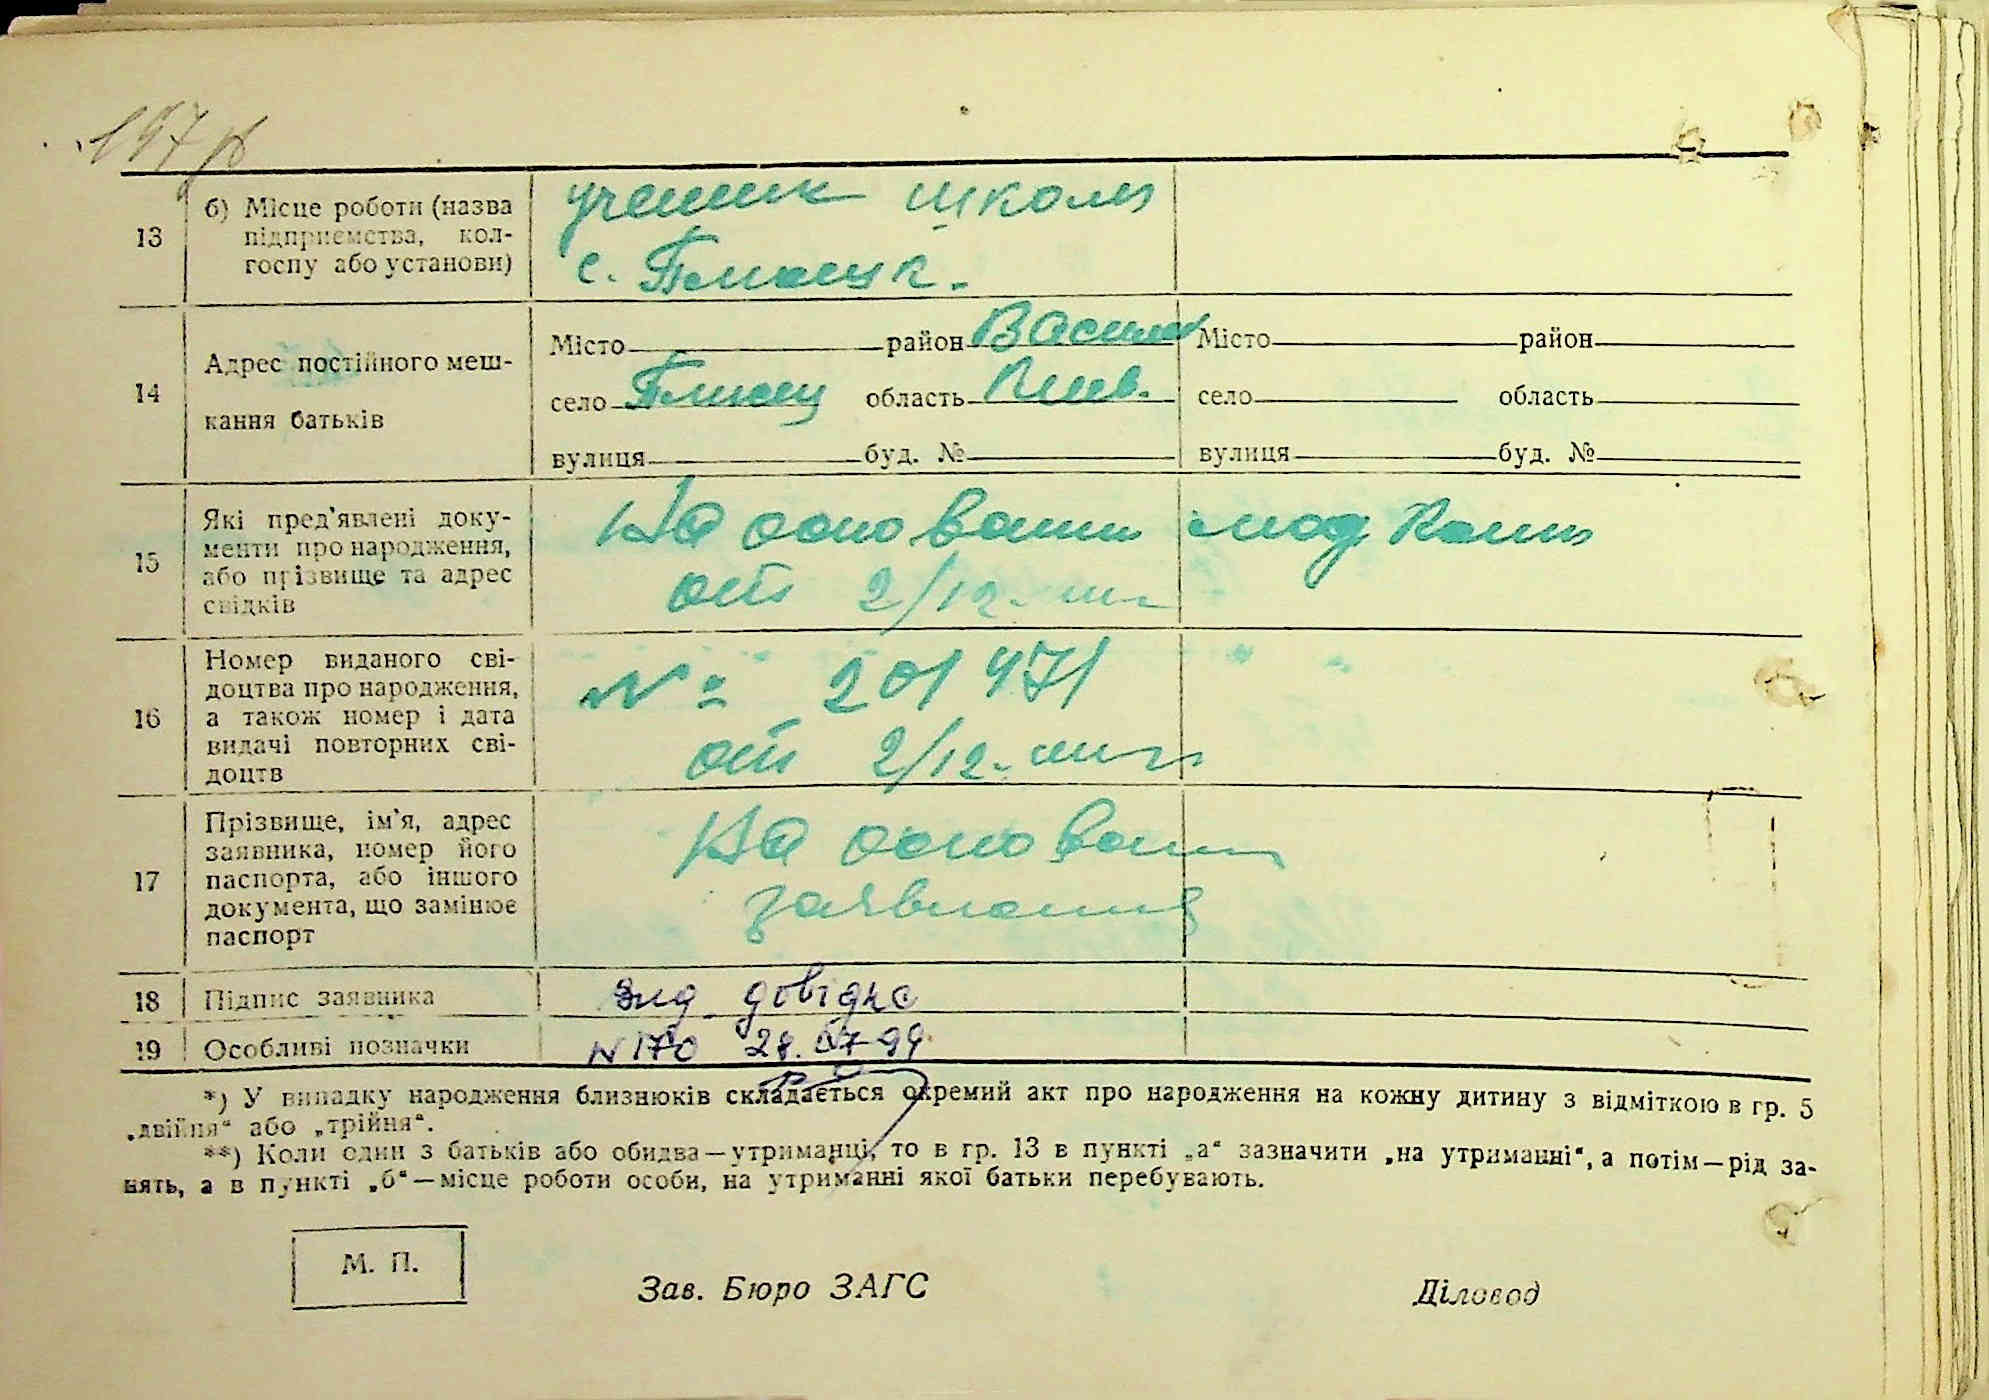 197 зв
13
б) Місце роботи (назва
підприємства, кол-
госпу або установи)
ученик школы
с. Плисецк.
14
Адрес постійного меш-
кання батьків
Місто район Василь Місто район
село Плисец область Киев. село область
вулиця буд. № вулиця буд. №
15
Які пред'явлені доку-
менти про народження,
або прізвище та адрес
свідків
На основании мед
от 2/12.
16
Номер виданого сві-
доцтва про народження,
а також номер і дата
видачі повторних сві-
доцтв
№ 201471
от 2/12.
17
Прізвище, ім'я, адрес
заявника, номер його
паспорта, або іншого
документа, що замінює
паспорт
На основании
заявления
18 Підпис заявника
вид довідка
19 Особливі позначки
N 170 28.07-94
*) У випадку народження близнюків складається окремий акт про народження на кожну дитину з відміткою в гр. 5
„двійня“ або „трійня“.
**) Коли один з батьків або обидва—утриманці, то в гр. 13 в пункті „а“ зазначити „на утриманні“, а потім—рід за-
нять, а в пункті „б“—місце роботи особи, на утриманні якої батьки перебувають.
М. П.
Зав. Бюро ЗАГС Діловод